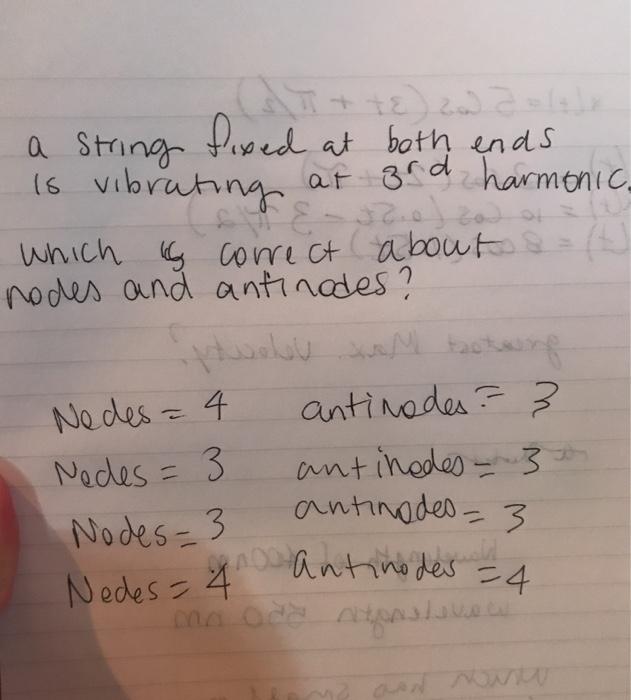 a string fixed at both ends
is vibrating at 3rd harmonic.
which is correct about
nodes and antinodes?
Nodes = 4 antinodes = 3
Nodes = 3 antinodes = 3
Nodes = 3 antinodes = 3
Nodes = 4 antinodes = 4